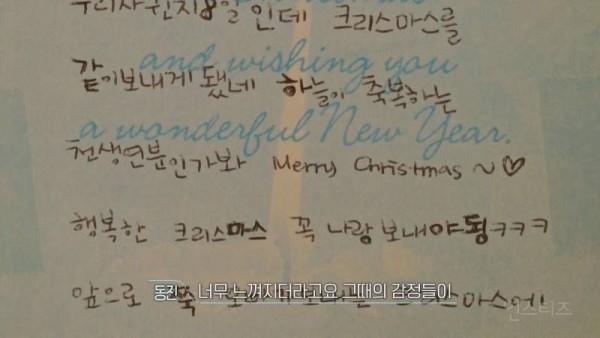 우리사귄지8일인데 크리스마스를
and wishing you
같이보내게 됐네 하늘이 축복하는
a wonderful New Year.
천생연분인가봐 Merry Christmas ~♡
행복한 크리스마스 꼭 나랑보내야됭ㅋㅋㅋ
앞으로 쭉
동진 너무 느껴지더라고요 그때의 감정들이
인스티즈